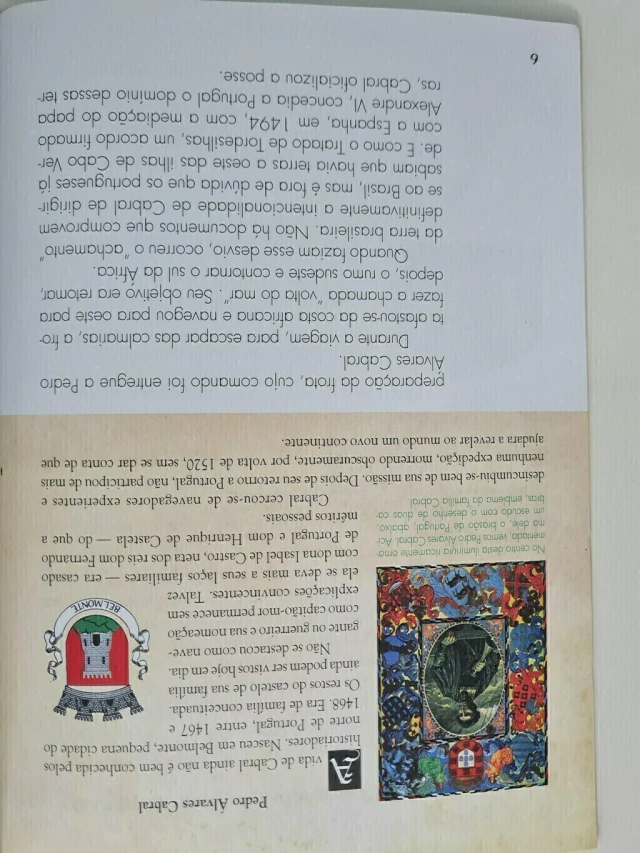 Pedro Álvares Cabral
A vida de Cabral ainda não é bem conhecida pelos
historiadores. Nasceu em Belmonte, pequena cidade do
norte de Portugal, entre 1467 e
1468. Era de família conceituada.
Os restos do castelo de sua família
ainda podem ser vistos hoje em dia.
Não se destacou como nave-
gante ou guerreiro e sua nomeação
como capitão-mor permanece sem
explicações convincentes. Talvez
ela se deva mais a seus laços familiares — era casado
com dona Isabel de Castro, neta dos reis dom Fernando
de Portugal e dom Henrique de Castela — do que a
méritos pessoais.
Cabral cercou-se de navegadores experientes e
desincumbiu-se bem de sua missão. Depois de seu retorno a Portugal, não participou de mais
nenhuma expedição, morrendo obscuramente, por volta de 1520, sem se dar conta de que
ajudara a revelar ao mundo um novo continente.
BELMONTE
No centro desta iluminura ricamente orna-
mentada, vemos Pedro Álvares Cabral. Aci-
ma dele, o brasão de Portugal; abaixo,
um escudo com o desenho de duas ca-
bras, emblema da família Cabral.
preparação da frota, cujo comando foi entregue a Pedro
Álvares Cabral.
Durante a viagem, para escapar das calmarias, a fro-
ta afastou-se da costa africana e navegou para oeste para
fazer a chamada "volta do mar". Seu objetivo era retomar,
depois, o rumo sudeste e contornar o sul da África.
Quando faziam esse desvio, ocorreu o "achamento"
da terra brasileira. Não há documentos que comprovem
definitivamente a intencionalidade de Cabral de dirigir-
se ao Brasil, mas é fora de dúvida que os portugueses já
sabiam que havia terras a oeste das ilhas de Cabo Ver-
de. E como o Tratado de Tordesilhas, um acordo firmado
com a Espanha, em 1494, com a mediação do papa
Alexandre VI, concedia a Portugal o domínio dessas ter-
ras, Cabral oficializou a posse.
6